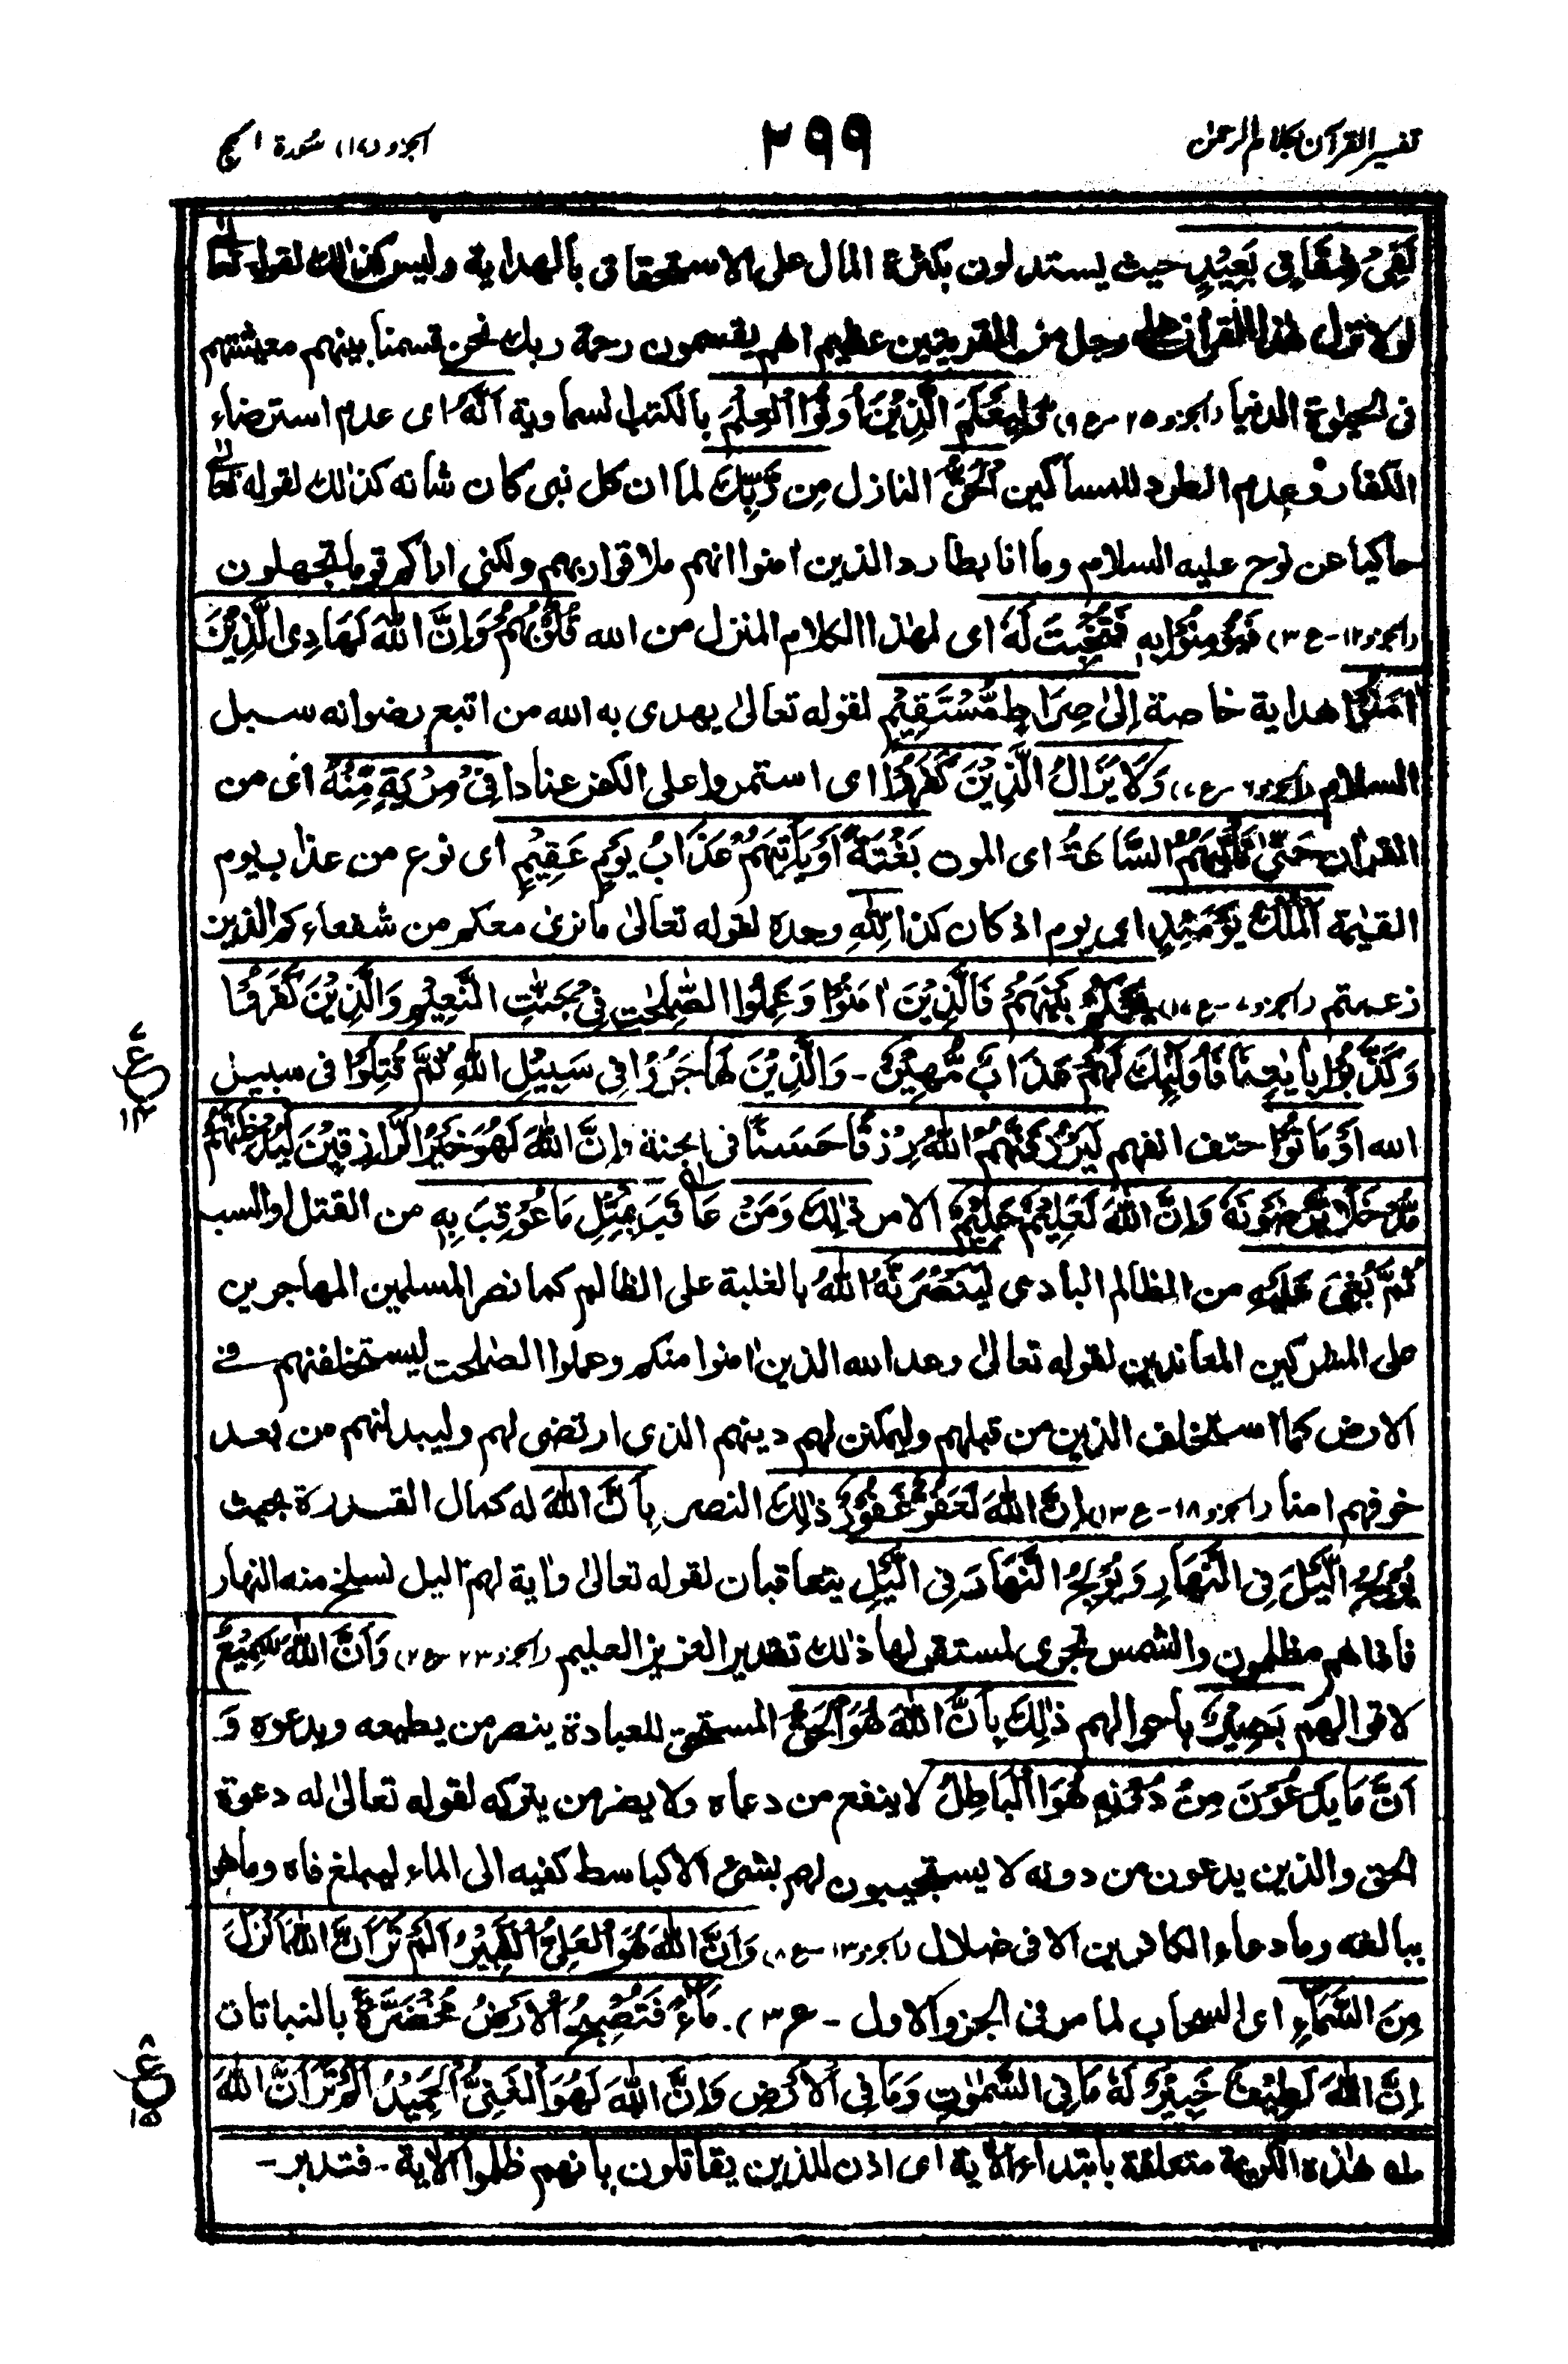 تفسير القرآن بكلام الرحمن ٢٩٩ الجزو (١٧) سورة الحج
لَفِيْ شِقَاقٍ بَعِيْدٍ حيث يستدلون بكثرة المال على الاستحقاق بالهداية وليس كذالك لقوله تعالى
لولا نزل هذا القرآن على رجل من القريتين عظيم اهم يقسمون رحمة ربك نحن قسمنا بينهم معيشتهم
فى الحيوة الدنيا (الجزو ٢٥-ع ٩) وَّلِيَعْلَمَ الَّذِيْنَ اُوْتُوا الْعِلْمَ بالكتب السماوية اَنَّهُ اى عدم استرضاء
الكفار وعدم الطرد للمساكين الْحَقُّ النازل مِن رَّبِّكَ لما ان كل نبى كان شانه كذالك لقوله تعالى
حاكيا عن نوح عليه السلام وما انا بطارد الذين امنوا انهم ملاقوا ربهم ولكنى اراكم قوما تجهلون
(الجزو ١٢-ع ٣) فَيُؤْمِنُوْا بِهٖ فَتُخْبِتَ لَهٗ اى لهذا الكلام المنزل من الله قُلُوْبُهُمْ وَاِنَّ اللّٰهَ لَهَادِى الَّذِيْنَ
اٰمَنُوْا هداية خاصة اِلٰى صِرَاطٍ مُّسْتَقِيْمٍ لقوله تعالىٰ يهدى به الله من اتبع رضوانه سبل
السلام (الجزو ٦-ع ٧) وَلَا يَزَالُ الَّذِيْنَ كَفَرُوْا اى استمروا على الكفر عنادا فِىْ مِرْيَةٍ مِّنْهُ اى من
القران حَتّٰى تَأْتِيَهُمُ السَّاعَةُ اى الموت بَغْتَةً اَوْ يَأْتِيَهُمْ عَذَابُ يَوْمٍ عَقِيْمٍ اى نوع من عذاب يوم
القيٰمة اَلْمُلْكُ يَوْمَئِذٍ اى يوم اذ كان كذا لِلّٰهِ وحده لقوله تعالىٰ ما نرىٰ معكم من شفعاءكم الذين
زعمتم (الجزو ٧-ع ١٧) يَحْكُمُ بَيْنَهُمْ فَالَّذِيْنَ اٰمَنُوْا وَعَمِلُوا الصّٰلِحٰتِ فِىْ جَنّٰتِ النَّعِيْمِ وَالَّذِيْنَ كَفَرُوْا
وَكَذَّبُوْا بِاٰيٰتِنَا فَاُولٰٓئِكَ لَهُمْ عَذَابٌ مُّهِيْنٌ - وَالَّذِيْنَ هَاجَرُوْا فِى سَبِيْلِ اللّٰهِ ثُمَّ قُتِلُوْا فى سبيل
الله اَوْ مَاتُوْا حتف انفهم لَيَرْزُقَنَّهُمُ اللّٰهُ رِزْقًا حَسَنًا فى الجنة وَاِنَّ اللّٰهَ لَهُوَ خَيْرُ الرَّازِقِيْنَ لَيُدْخِلَنَّهُمْ
مُّدْخَلًا يَّرْضَوْنَهٗ وَاِنَّ اللّٰهَ لَعَلِيْمٌ حَلِيْمٌ الامر ذٰلِكَ وَمَنْ عَاقَبَ بِمِثْلِ مَا عُوْقِبَ بِهٖ من القتل او السب
ثُمَّ بُغِىَ عَلَيْهِ من الظالم البادى لَيَنْصُرَنَّهُ اللّٰهُ بالغلبة على الظالم كما نصر المسلمين المهاجرين
على المشركين المعاندين لقوله تعالىٰ وعد الله الذين اٰمنوا منكم وعملوا الصٰلحت ليستخلفنهم فى
الارض كما استخلف الذين من قبلهم وليمكنن لهم دينهم الذى ارتضى لهم وليبدلنهم من بعد
خوفهم امنا (الجزو ١٨-ع ١٣) اِنَّ اللّٰهَ لَعَفُوٌّ غَفُوْرٌ ذٰلِكَ النصر بِاَنَّ اللّٰهَ له كمال القدرة بحيث
يُوْلِجُ الَّيْلَ فِى النَّهَارِ وَيُوْلِجُ النَّهَارَ فِى الَّيْلِ يتعاقبان لقوله تعالىٰ واٰية لهم اليل نسلخ منه النهار
فاذا هم مظلمون والشمس تجرى لمستقر لها ذٰلك تقدير العزيز العليم (الجزو ٢٣-ع ٢) وَاَنَّ اللّٰهَ سَمِيْعٌ
لاقوالهم بَصِيْرٌ باحوالهم ذٰلِكَ بِاَنَّ اللّٰهَ هُوَ الْحَقُّ المستحق للعبادة ينصر من يطيعه ويدعوه وَ
اَنَّ مَا يَدْعُوْنَ مِنْ دُوْنِهٖ هُوَ الْبَاطِلُ لا ينفع من دعاه ولا يضر من يتركه لقوله تعالىٰ له دعوة
الحق والذين يدعون من دونه لا يستجيبون لهم بشىء الا كباسط كفيه الى الماء ليبلغ فاه وما هو
ببالغه وما دعاء الكافرين الا فى ضلال (الجزو ١٣-ع ٨) وَاَنَّ اللّٰهَ هُوَ الْعَلِىُّ الْكَبِيْرُ اَلَمْ تَرَ اَنَّ اللّٰهَ اَنْزَلَ
مِنَ السَّمَآءِ اى السحاب لما مر فى الجزو الاول - ع ٣). مَآءً فَتُصْبِحُ الْاَرْضُ مُخْضَرَّةً بالنباتات
اِنَّ اللّٰهَ لَطِيْفٌ خَبِيْرٌ لَهٗ مَا فِى السَّمٰوٰتِ وَمَا فِى الْاَرْضِ وَاِنَّ اللّٰهَ لَهُوَ الْغَنِىُّ الْحَمِيْدُ اَلَمْ تَرَ اَنَّ اللّٰهَ
له هٰذه الكريمة متعلقة بابتداء الاٰية اى اذن للذين يقاتلون بانهم ظلموا الاية - فتدبر -
ع ١٤
ع ٨ ١٥